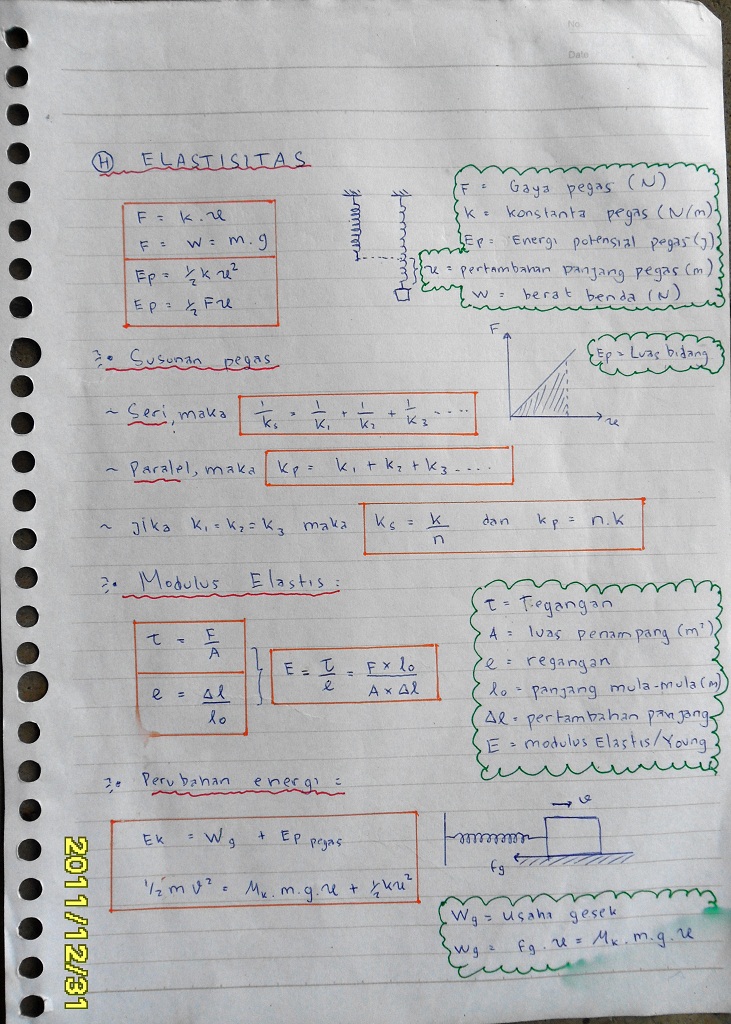 No.
Date
(H) ELASTISITAS
F = k.x
F = W = m.g
Ep = ½ k x²
Ep = ½ F x
F = Gaya pegas (N)
k = konstanta pegas (N/m)
Ep = Energi potensial pegas (J)
x = pertambahan panjang pegas (m)
W = berat benda (N)
Susunan pegas
F
x
Ep = Luas bidang
~ Seri, maka 1/ks = 1/k₁ + 1/k₂ + 1/k₃ ....
~ Paralel, maka kp = k₁ + k₂ + k₃ ....
~ Jika k₁ = k₂ = k₃ maka ks = k/n dan kp = n.k
Modulus Elastis :
τ = F/A
e = Δl/lo
E = τ/e = F x lo / A x Δl
τ = Tegangan
A = luas penampang (m²)
e = regangan
lo = panjang mula-mula (m)
Δl = pertambahan panjang
E = modulus Elastis/Young
Perubahan energi =
Ek = Wg + Ep pegas
½ m v² = μk.m.g.x + ½kx²
v
fg
Wg = usaha gesek
Wg = fg.x = μk.m.g.x
2011/12/31